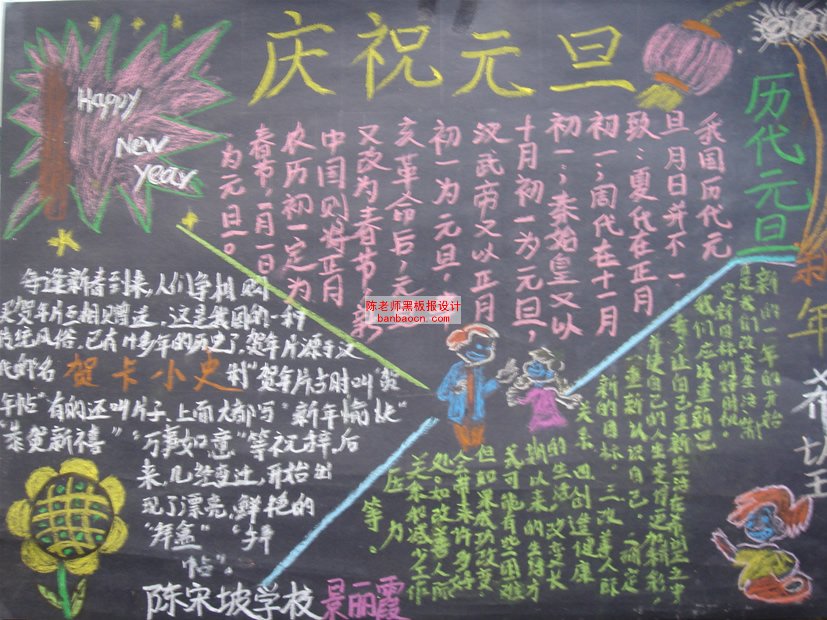 庆祝元旦
Happy
New
year
历代元旦
我国历代元
旦月日并不一
致：夏代在正月
初一；周代在十一月
初一；秦始皇又以
十月初一为元旦，
汉武帝又以正月
初一为元旦，
亥革命后，元
又改为春节，新
中国则将正月
农历初一定为
春节，一月一日
为元旦。
陈老师黑板报设计
banbaocn.com
争逢新春到来，人们争相购
买贺年片互相赠送，这是我国的一种
传统风俗，已有
多年的历史了，贺年片源于汉
贺卡小史
"贺年片当时叫"贺
年帖"有的还叫片子，上面大都写"新年愉快"
"恭贺新禧""万事如意"等祝辞，后
来，几经变迁，开始出
现了漂亮，鲜艳的
帖"。
新年希望
新的一年的开始
是我们改变生活，制
定新目标的好时机。
我们应该重新思
考，让自己重新生活在希望之中
并使自己的人生变得更加精彩，
一、重新认识自己。
确定
新的目标。三、改善人际
关系。
四、创造健康
的生活，改变长
期以来的生活方
式可能有些困难
但如果成功改变，
会带来许多好
处：如改善人际
关系和减少工作
压力等。
陈宋坡学校 景丽霞